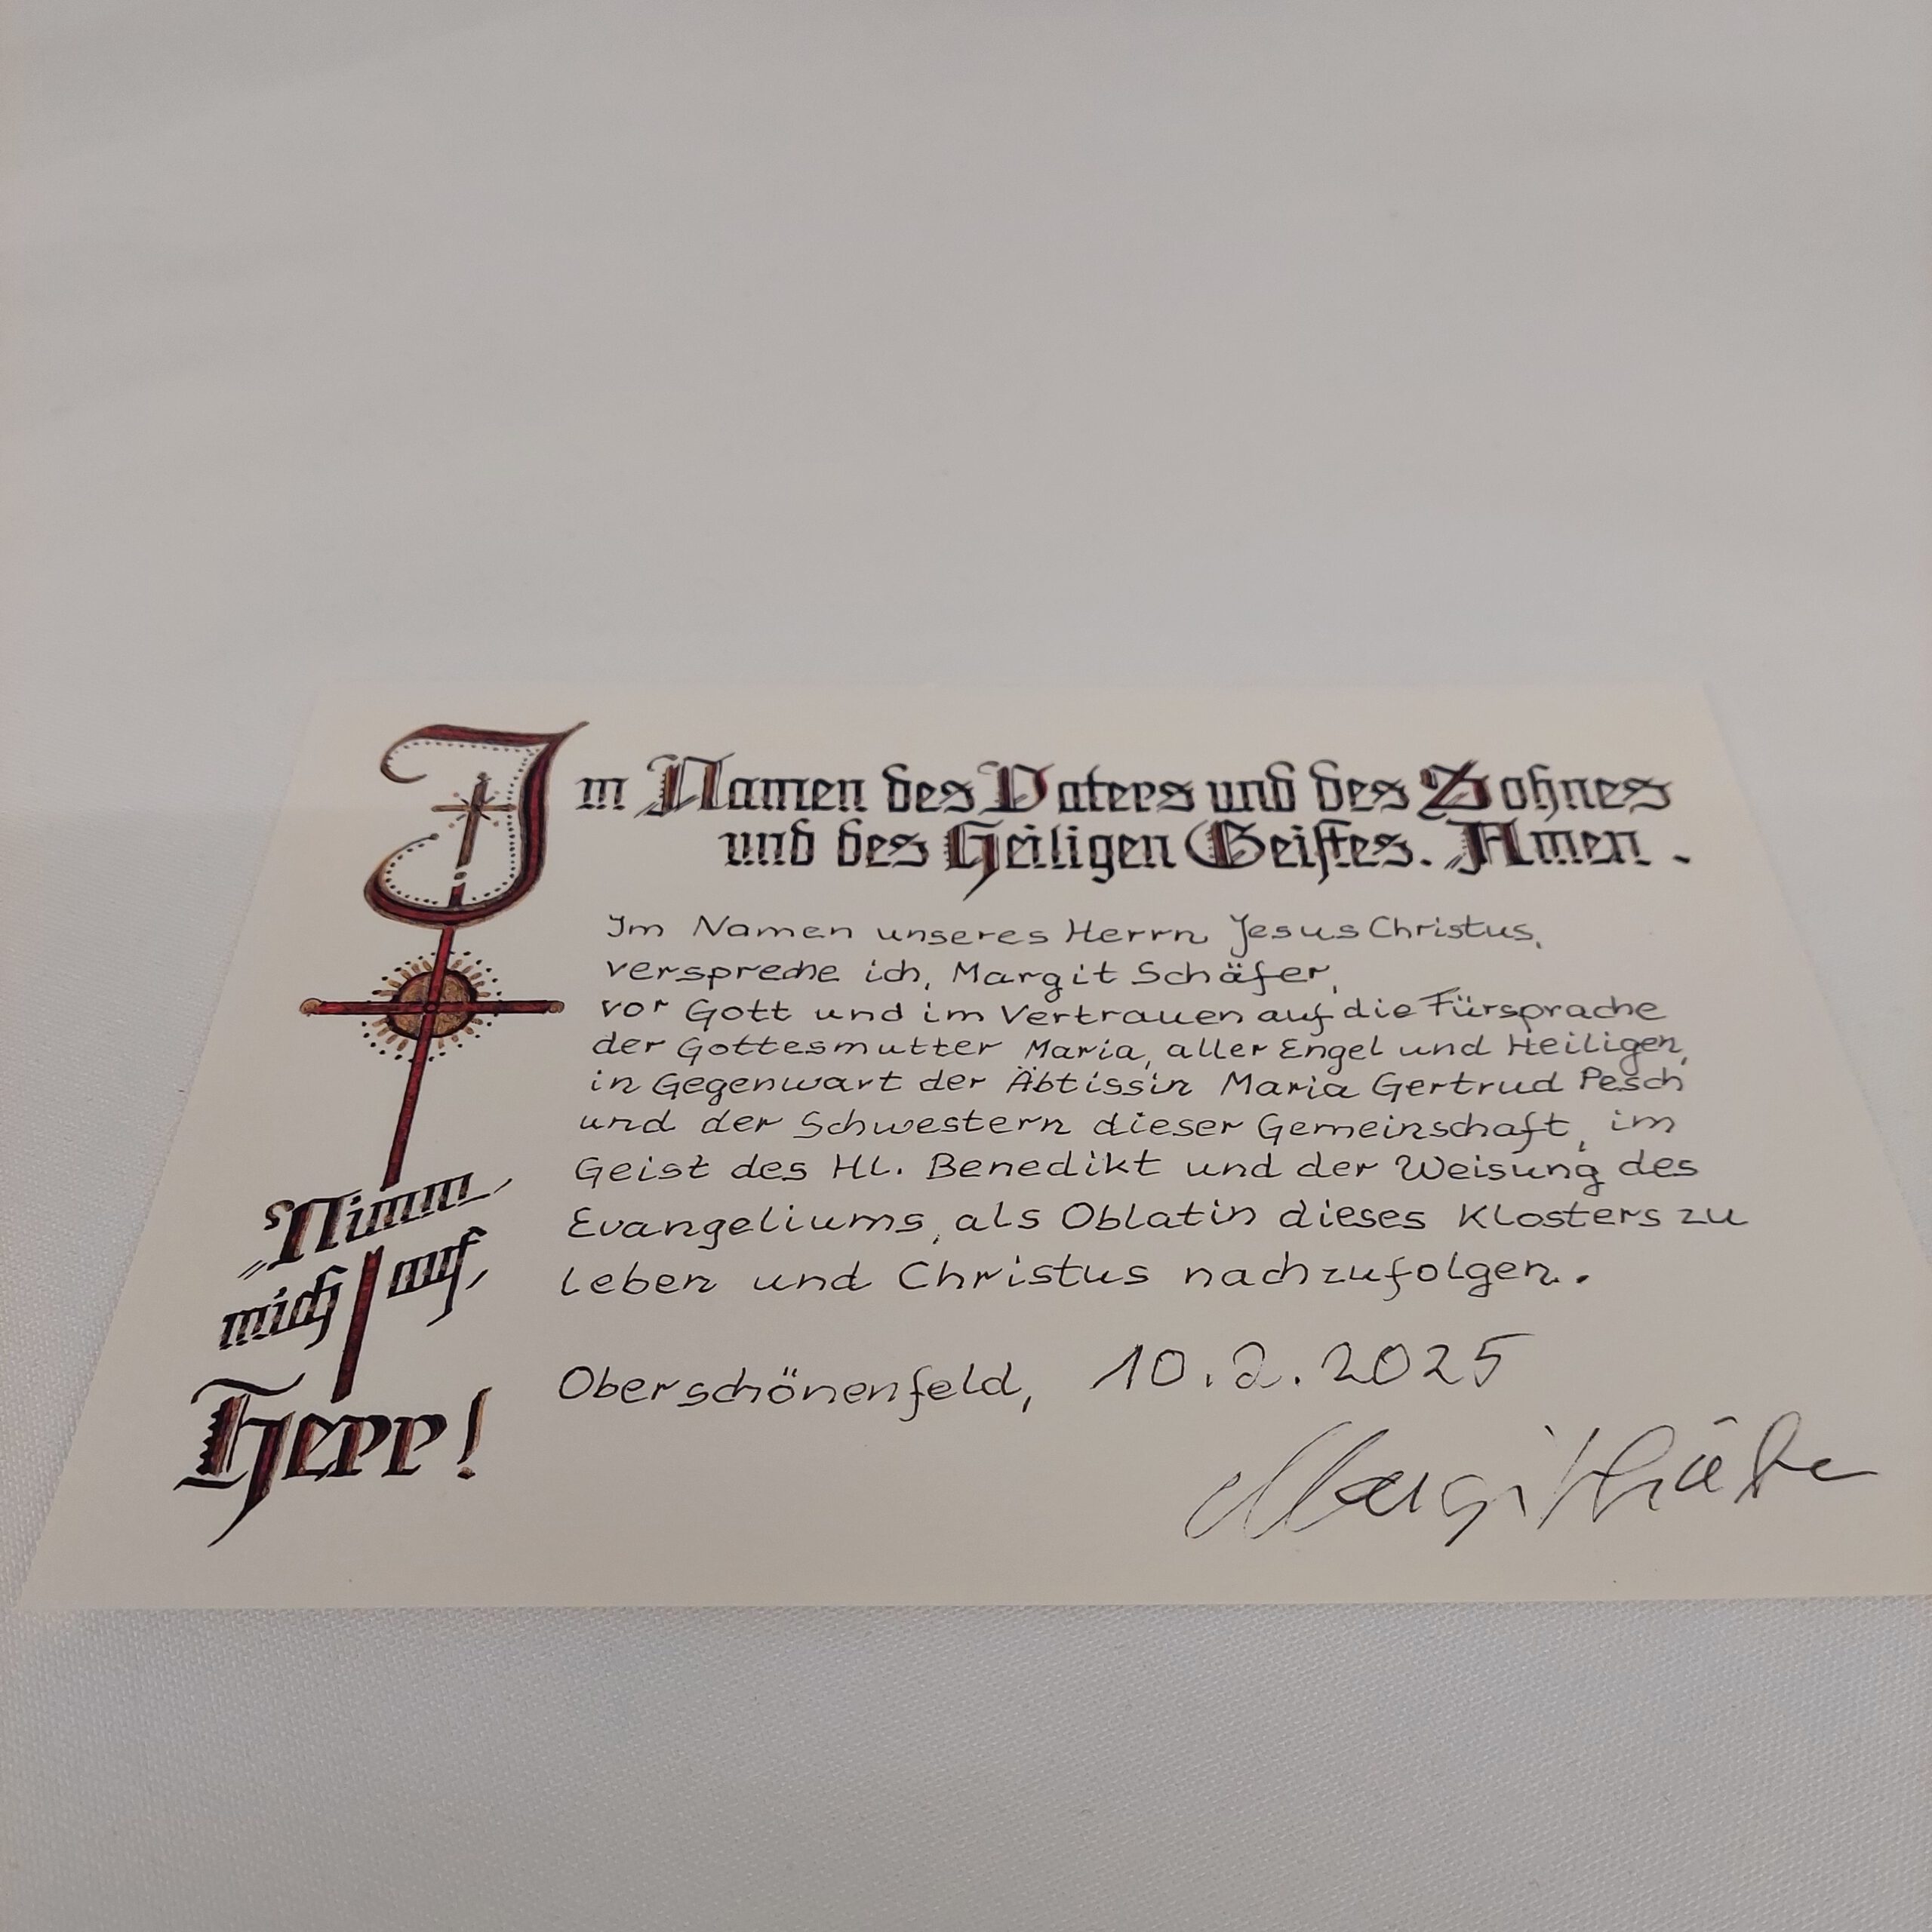 Im Namen des Vaters und des Sohnes
und des Heiligen Geistes. Amen.
Im Namen unseres Herrn Jesus Christus,
verspreche ich, Margit Schäfer,
vor Gott und im Vertrauen auf die Fürsprache
der Gottesmutter Maria, aller Engel und Heiligen,
in Gegenwart der Äbtissin Maria Gertrud Pesch
und der Schwestern dieser Gemeinschaft, im
Geist des Hl. Benedikt und der Weisung des
Evangeliums, als Oblatin dieses Klosters zu
leben und Christus nachzufolgen.
Oberschönenfeld, 10.2.2025
Margit Schäfer
„Nimm
mich auf,
Herr!